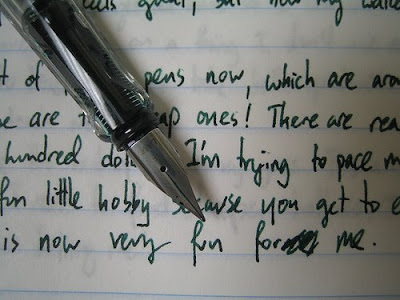 feels good, but now my
t of pens now, which are arou
e are cheap ones! There are rea
hundred do I'm trying to pace m
fun little hobby because you get to e
is now very fun for me.